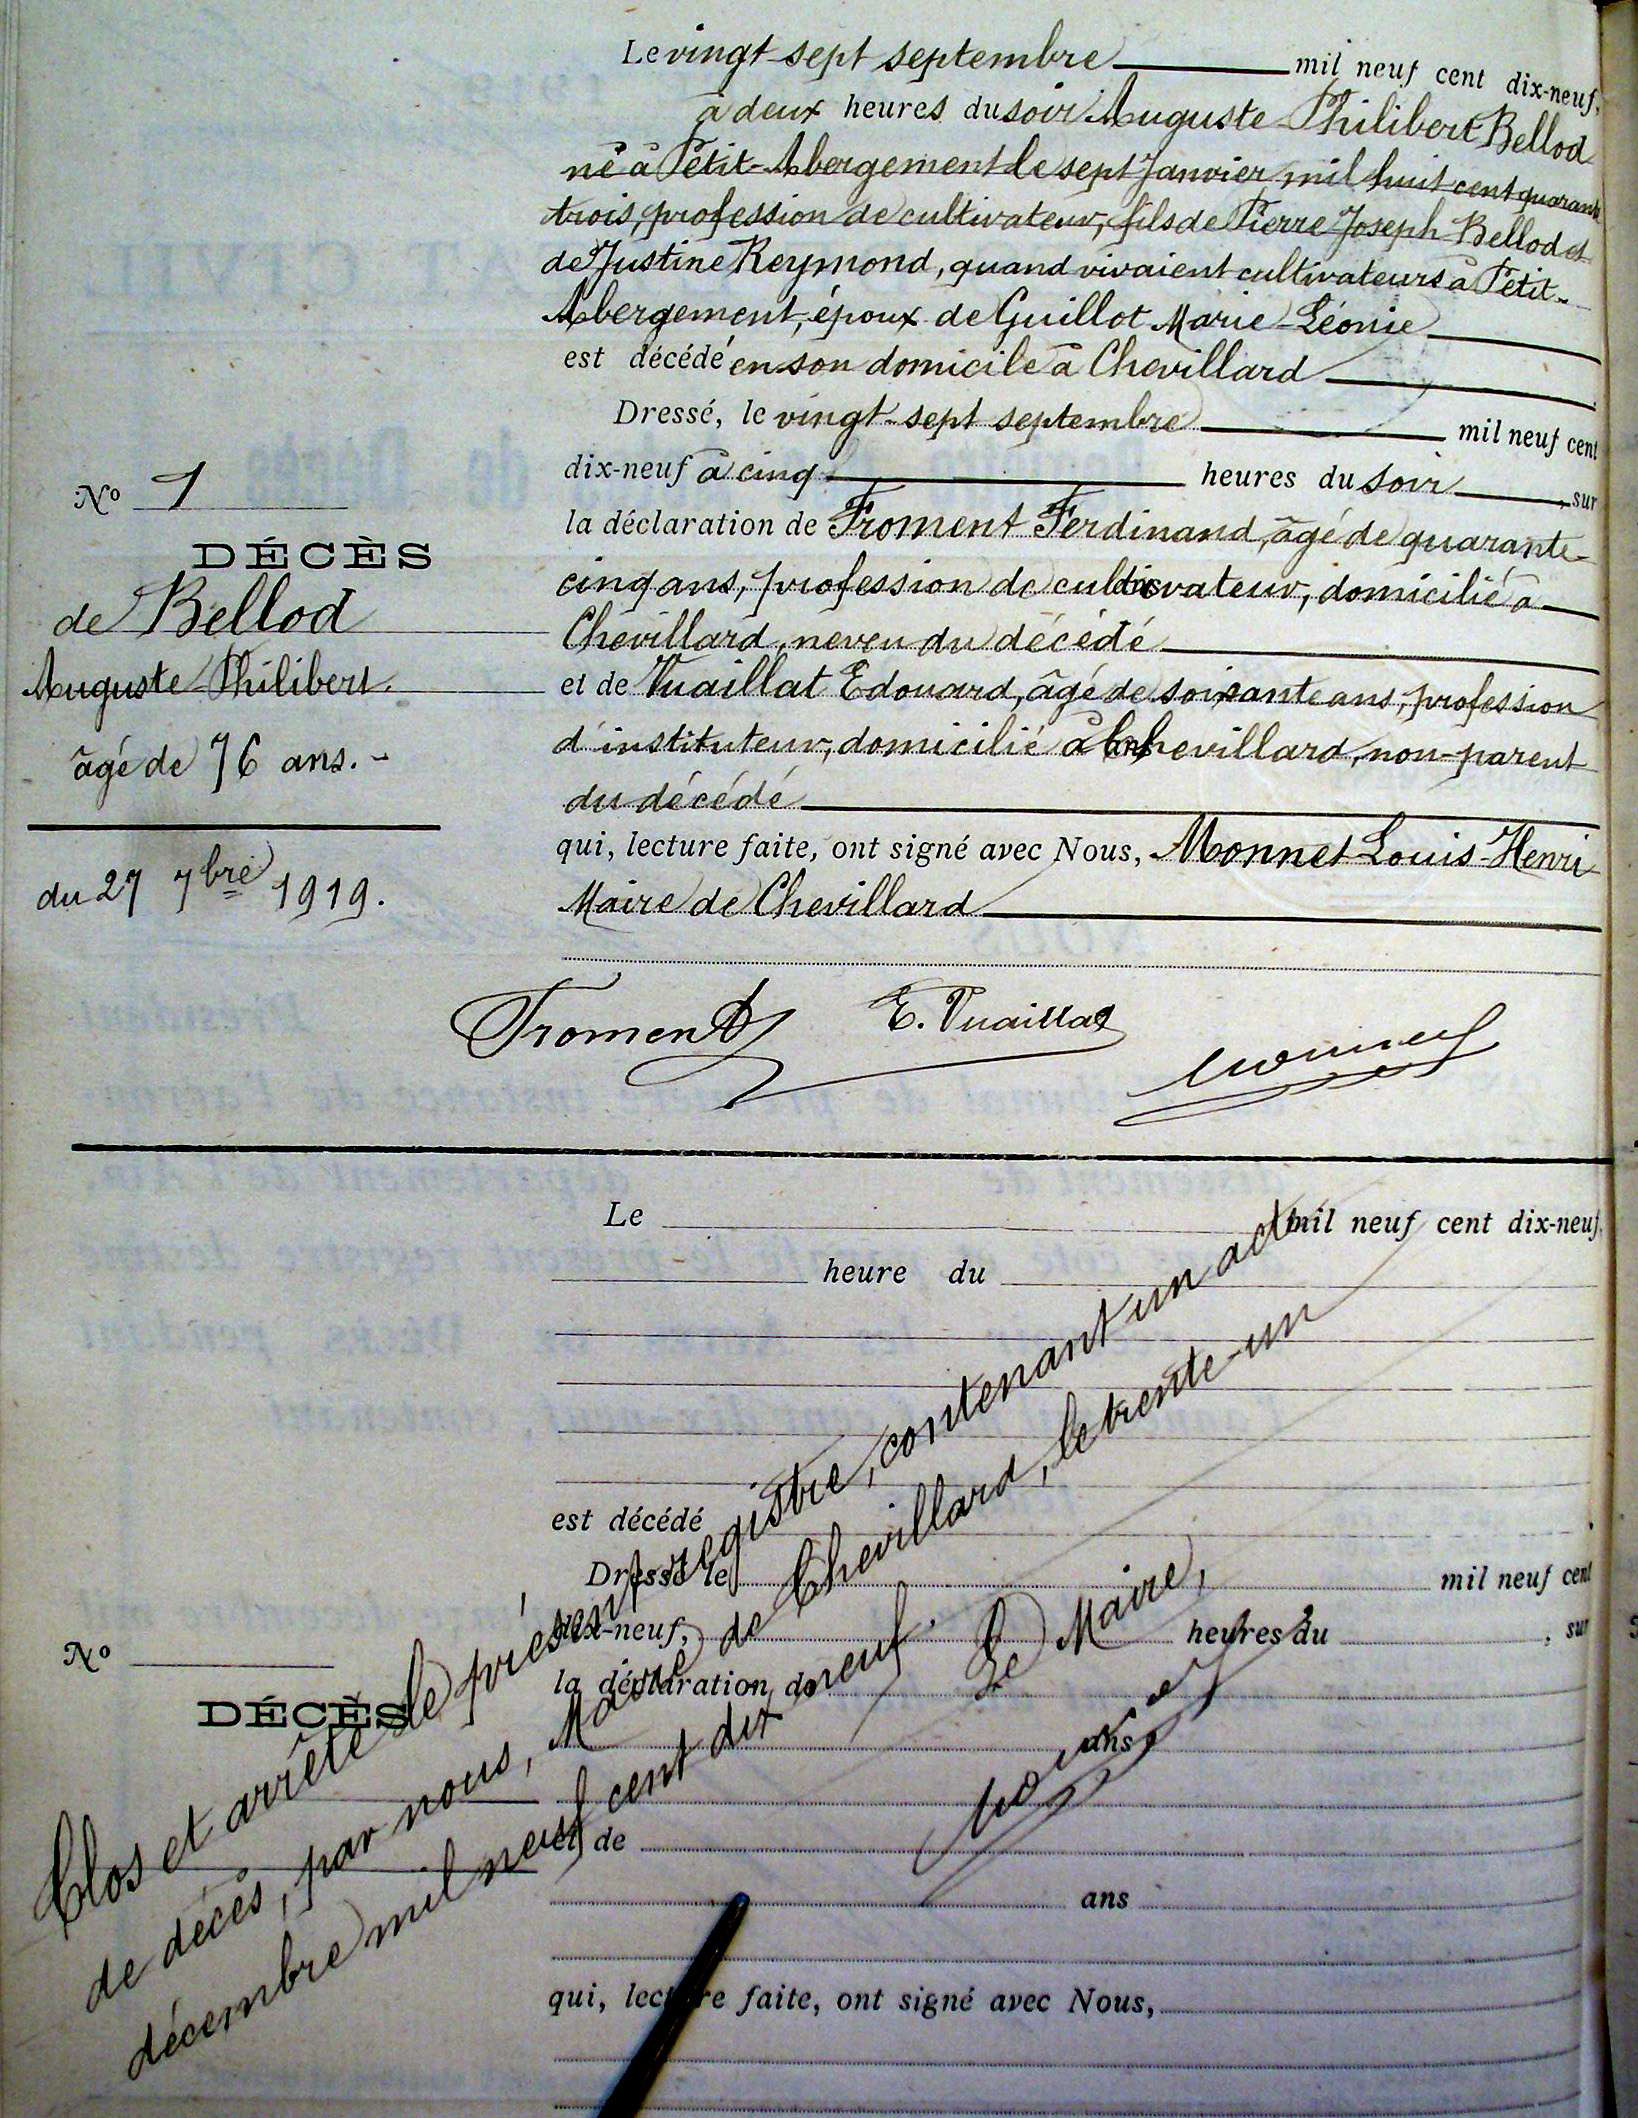 Le vingt-sept septembre mil neuf cent dix-neuf,
à deux heures du soir Auguste Philibert Bellod
né à Petit-Abergement le sept Janvier mil huit cent quarante
trois, profession de cultivateur, fils de Pierre Joseph Bellod et
de Justine Reymond, quand vivaient cultivateurs à Petit-
Abergement, époux de Guillot Marie-Léonie
est décédé en son domicile à Chevillard
Dressé, le vingt-sept septembre mil neuf cent
dix-neuf à cinq heures du soir, sur
la déclaration de Froment Ferdinand, âgé de quarante-
cinq ans, profession de cultivateur, domicilié à
Chevillard, neveu du décédé
et de Vuaillat Edouard, âgé de soixante ans, profession
d'instituteur, domicilié à Chevillard, non-parent
du décédé
qui, lecture faite, ont signé avec Nous, Monnet Louis-Henri
Maire de Chevillard
Froment E. Vuaillat Monnet
No 1
DÉCÈS
de Bellod
Auguste Philibert
âgé de 76 ans. -
du 27 7bre 1919.
Le mil neuf cent dix-neuf,
heure du
est décédé
Dressé le mil neuf cent
dix-neuf, heures du , sur
la déclaration de
ans
et de
ans
qui, lecture faite, ont signé avec Nous,
No
DÉCÈS
Clos et arrêté le présent registre, contenant un acte
de décès, par nous, Maire de Chevillard, le trente-un
décembre mil neuf cent dix neuf.
Le Maire,
Monnet